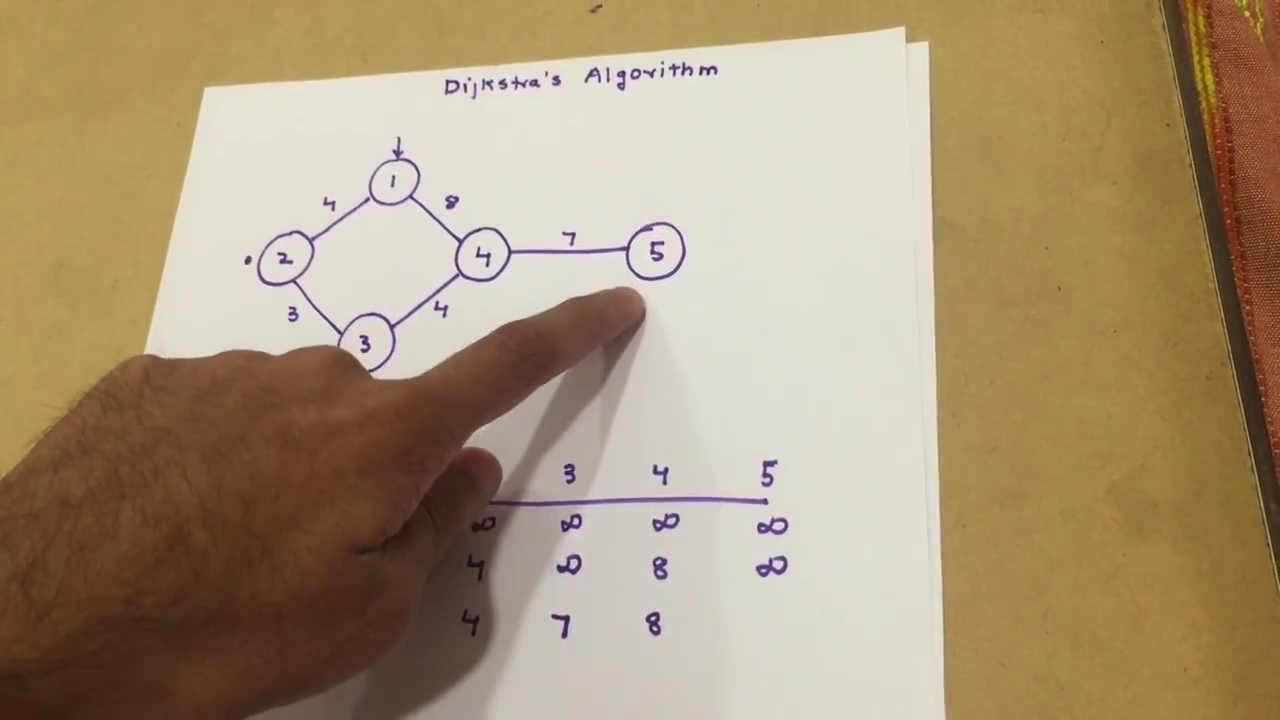 Dijkstra's Algorithm
1
4 8
2 4 7 5
3 4
3
3 4 5
∞ ∞ ∞ ∞
4 ∞ 8 ∞
4 7 8